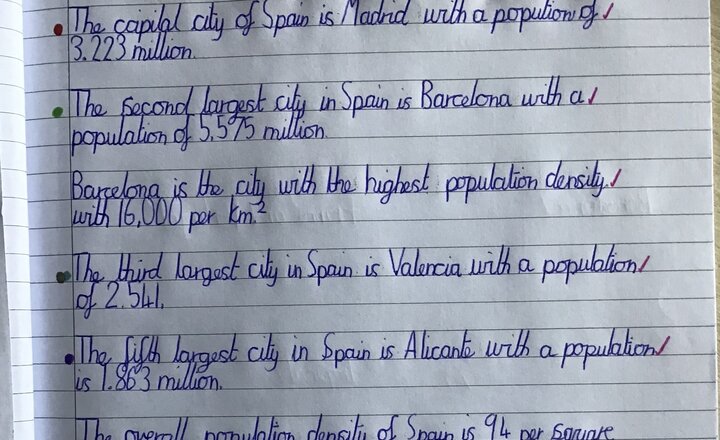 The capital city of Spain is Madrid with a popution of
3.223 million.
The second largest city in Spain is Barcelona with a
population of 5.575 million
Barcelona is the city with the highest population density.
with 16,000 per km.²
The third largest city in Spain is Valencia with a population
of 2.541.
The fifth largest city in Spain is Alicante with a population
is 1.863 million.
The overall population density of Spain is 94 per square